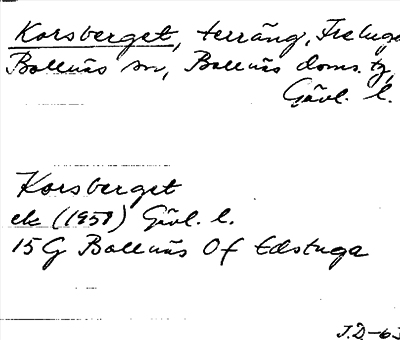 Korsberget, terräng, Freluga
Bollnäs sn, Bollnäs doms. tg,
Gävl. l.
Korsberget
ek (1958) Gävl. l.
15G Bollnäs Of Edstuga
J.D-63